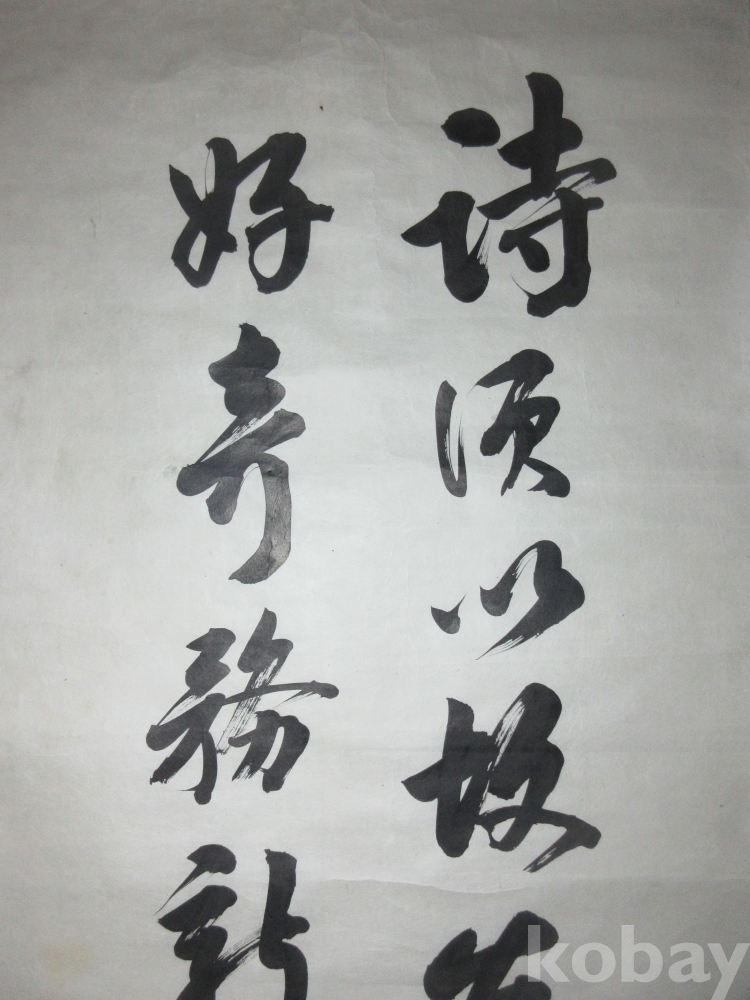 詩須以故
好奇務新
kobay